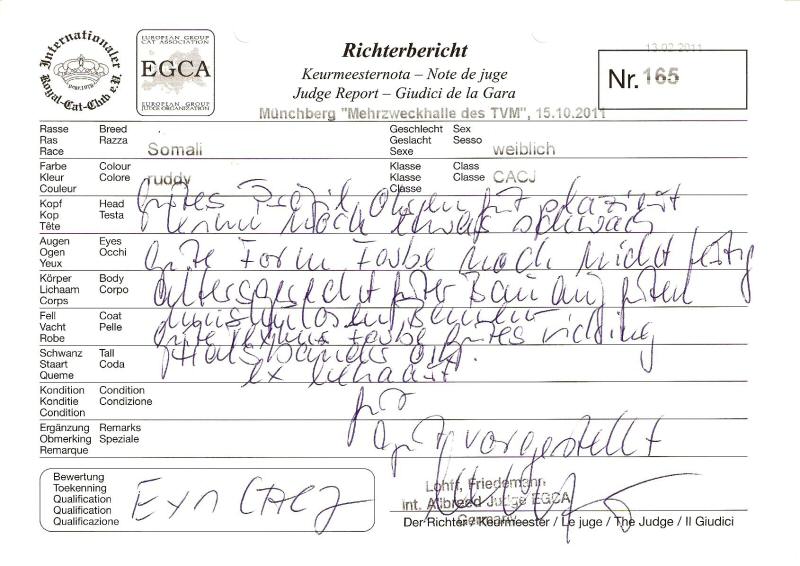 Internationaler Royal-Cat-Club e.V.
EUROPEAN GROUP CAT ASSOCIATION
EGCA
EUROPEAN GROUP JUDGE ORGANIZATION
Richterbericht
Keurmeesternota – Note de juge
Judge Report – Giudici de la Gara
13.02.2011
Nr. 165
Münchberg "Mehrzweckhalle des TVM", 15.10.2011
Rasse Breed
Ras Razza
Race
Somali
Geschlecht Sex
Geslacht Sesso
Sexe
weiblich
Farbe Colour
Kleur Colore
Couleur
ruddy
Klasse Class
Klasse Classe
Classe
CACJ
Kopf Head
Kop Testa
Tête
gutes Profil, Ohren gut plaziert
Kinn noch etwas schwach
Augen Eyes
Ogen Occhi
Yeux
gute Form Farbe noch nicht fertig
Körper Body
Lichaam Corpo
Corps
altersgerecht guter Bau auf guten
Fell Coat
Vacht Pelle
Robe
gute Farbe gutes ticking
Schwanz Tall
Staart Coda
Queme
ex behaart
Kondition Condition
Konditie Condizione
Condition
gut
Ergänzung Remarks
Obmerking Speziale
Remarque
gut vorgestellt
Bewertung
Toekenning
Qualification
Qualification
Qualificazione
Ex 1 CACJ
Lohff, Friedemann
Int. Allbreed-Judge EGCA
Germany
Der Richter / Keurmeester / Le juge / The Judge / Il Giudici